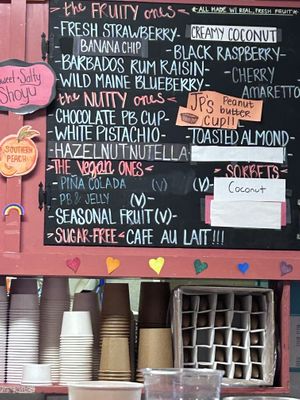 THE FRUITY ONES
*ALL MADE W/ REAL, FRESH FRUIT*
-FRESH STRAWBERRY-
CREAMY COCONUT
BANANA CHIP
-BLACK RASPBERRY-
-BARBADOS RUM RAISIN-
-CHERRY
AMARETTO
-WILD MAINE BLUEBERRY-
Sweet + Salty
Shoyu
THE NUTTY ONES
JP's Peanut
butter
cup!!
-CHOCOLATE PB CUP-
-WHITE PISTACHIO-
-TOASTED ALMOND-
HAZELNUT NUTELLA
SOUTHERN
PEACH
THE VEGAN ONES
SORBETS
-PIÑA COLADA (V)-
Coconut
-PB & JELLY (V)-
-SEASONAL FRUIT (V)-
-SUGAR-FREE CAFE AU LAIT!!!